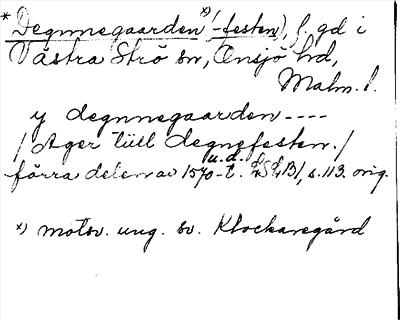 * Degnnegaarden x) (-festen), f. gd i
Västra Strö sn, Onsjö hd,
Malm. l.
y degnnegaarden ----
/ Ager till degnefesten. /
u. d.
förra delen av 1570-t. s. 113. orig.
x) motsv. ung. sv. Klockaregård